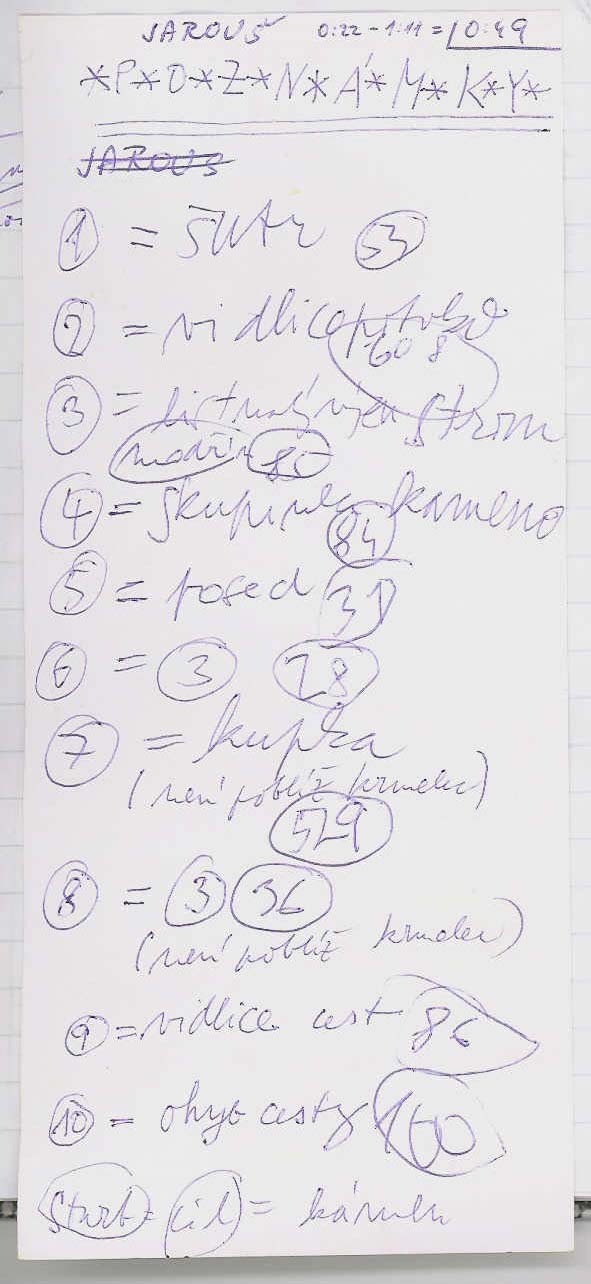 JAROUŠ 0:22 - 1:11 = 0:49
*P*O*Z*N*Á*M*K*Y*
JAROUŠ
1 = šutr 53
2 = vidlice potoků
608
3 = listnatých strom
modřín 85
4 = skupinka kamenů
84
5 = posed 31
6 = 3 28
7 = kupka
(není poblíž krmelec)
529
8 = 3 36
(není poblíž krmelec)
9 = vidlice cest 86
10 = ohyb cesty 160
start = cíl =